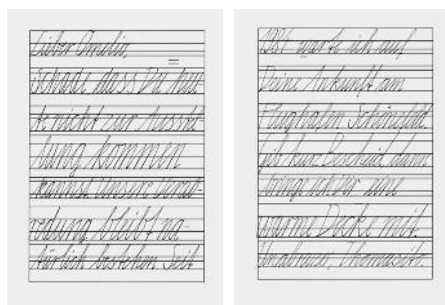 Lieber Emilio,
Schade dass Du heu
te nicht zur Ausstel-
lung kommen
kannst. Unsre Verab-
redung bleibt na-
türlich bestehen. Seit
1981 warte ich auf
Deine Ankunft am
Flughafen Schönefeld.
gib kurz Bescheid, dann
bringe ich Dir eine
warme Decke mit.
Thomas